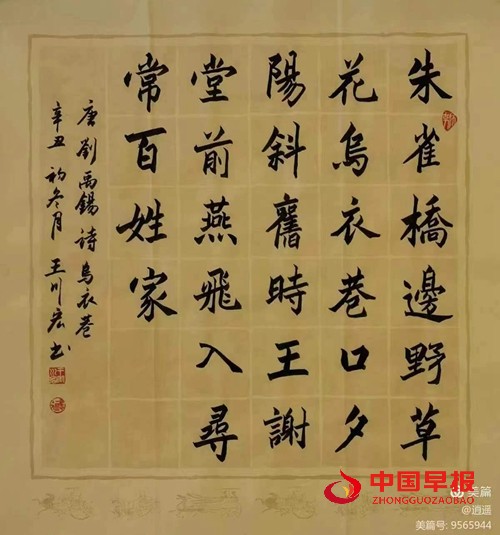 朱雀橋邊野草
花烏衣巷口夕
陽斜舊時王謝
堂前燕飛入尋
常百姓家
唐劉禹錫詩烏衣巷
辛丑初冬月王川宏书
中国早报
ZHONGGUOZAOBAO
美篇
@逍遥
美篇号: 9565944